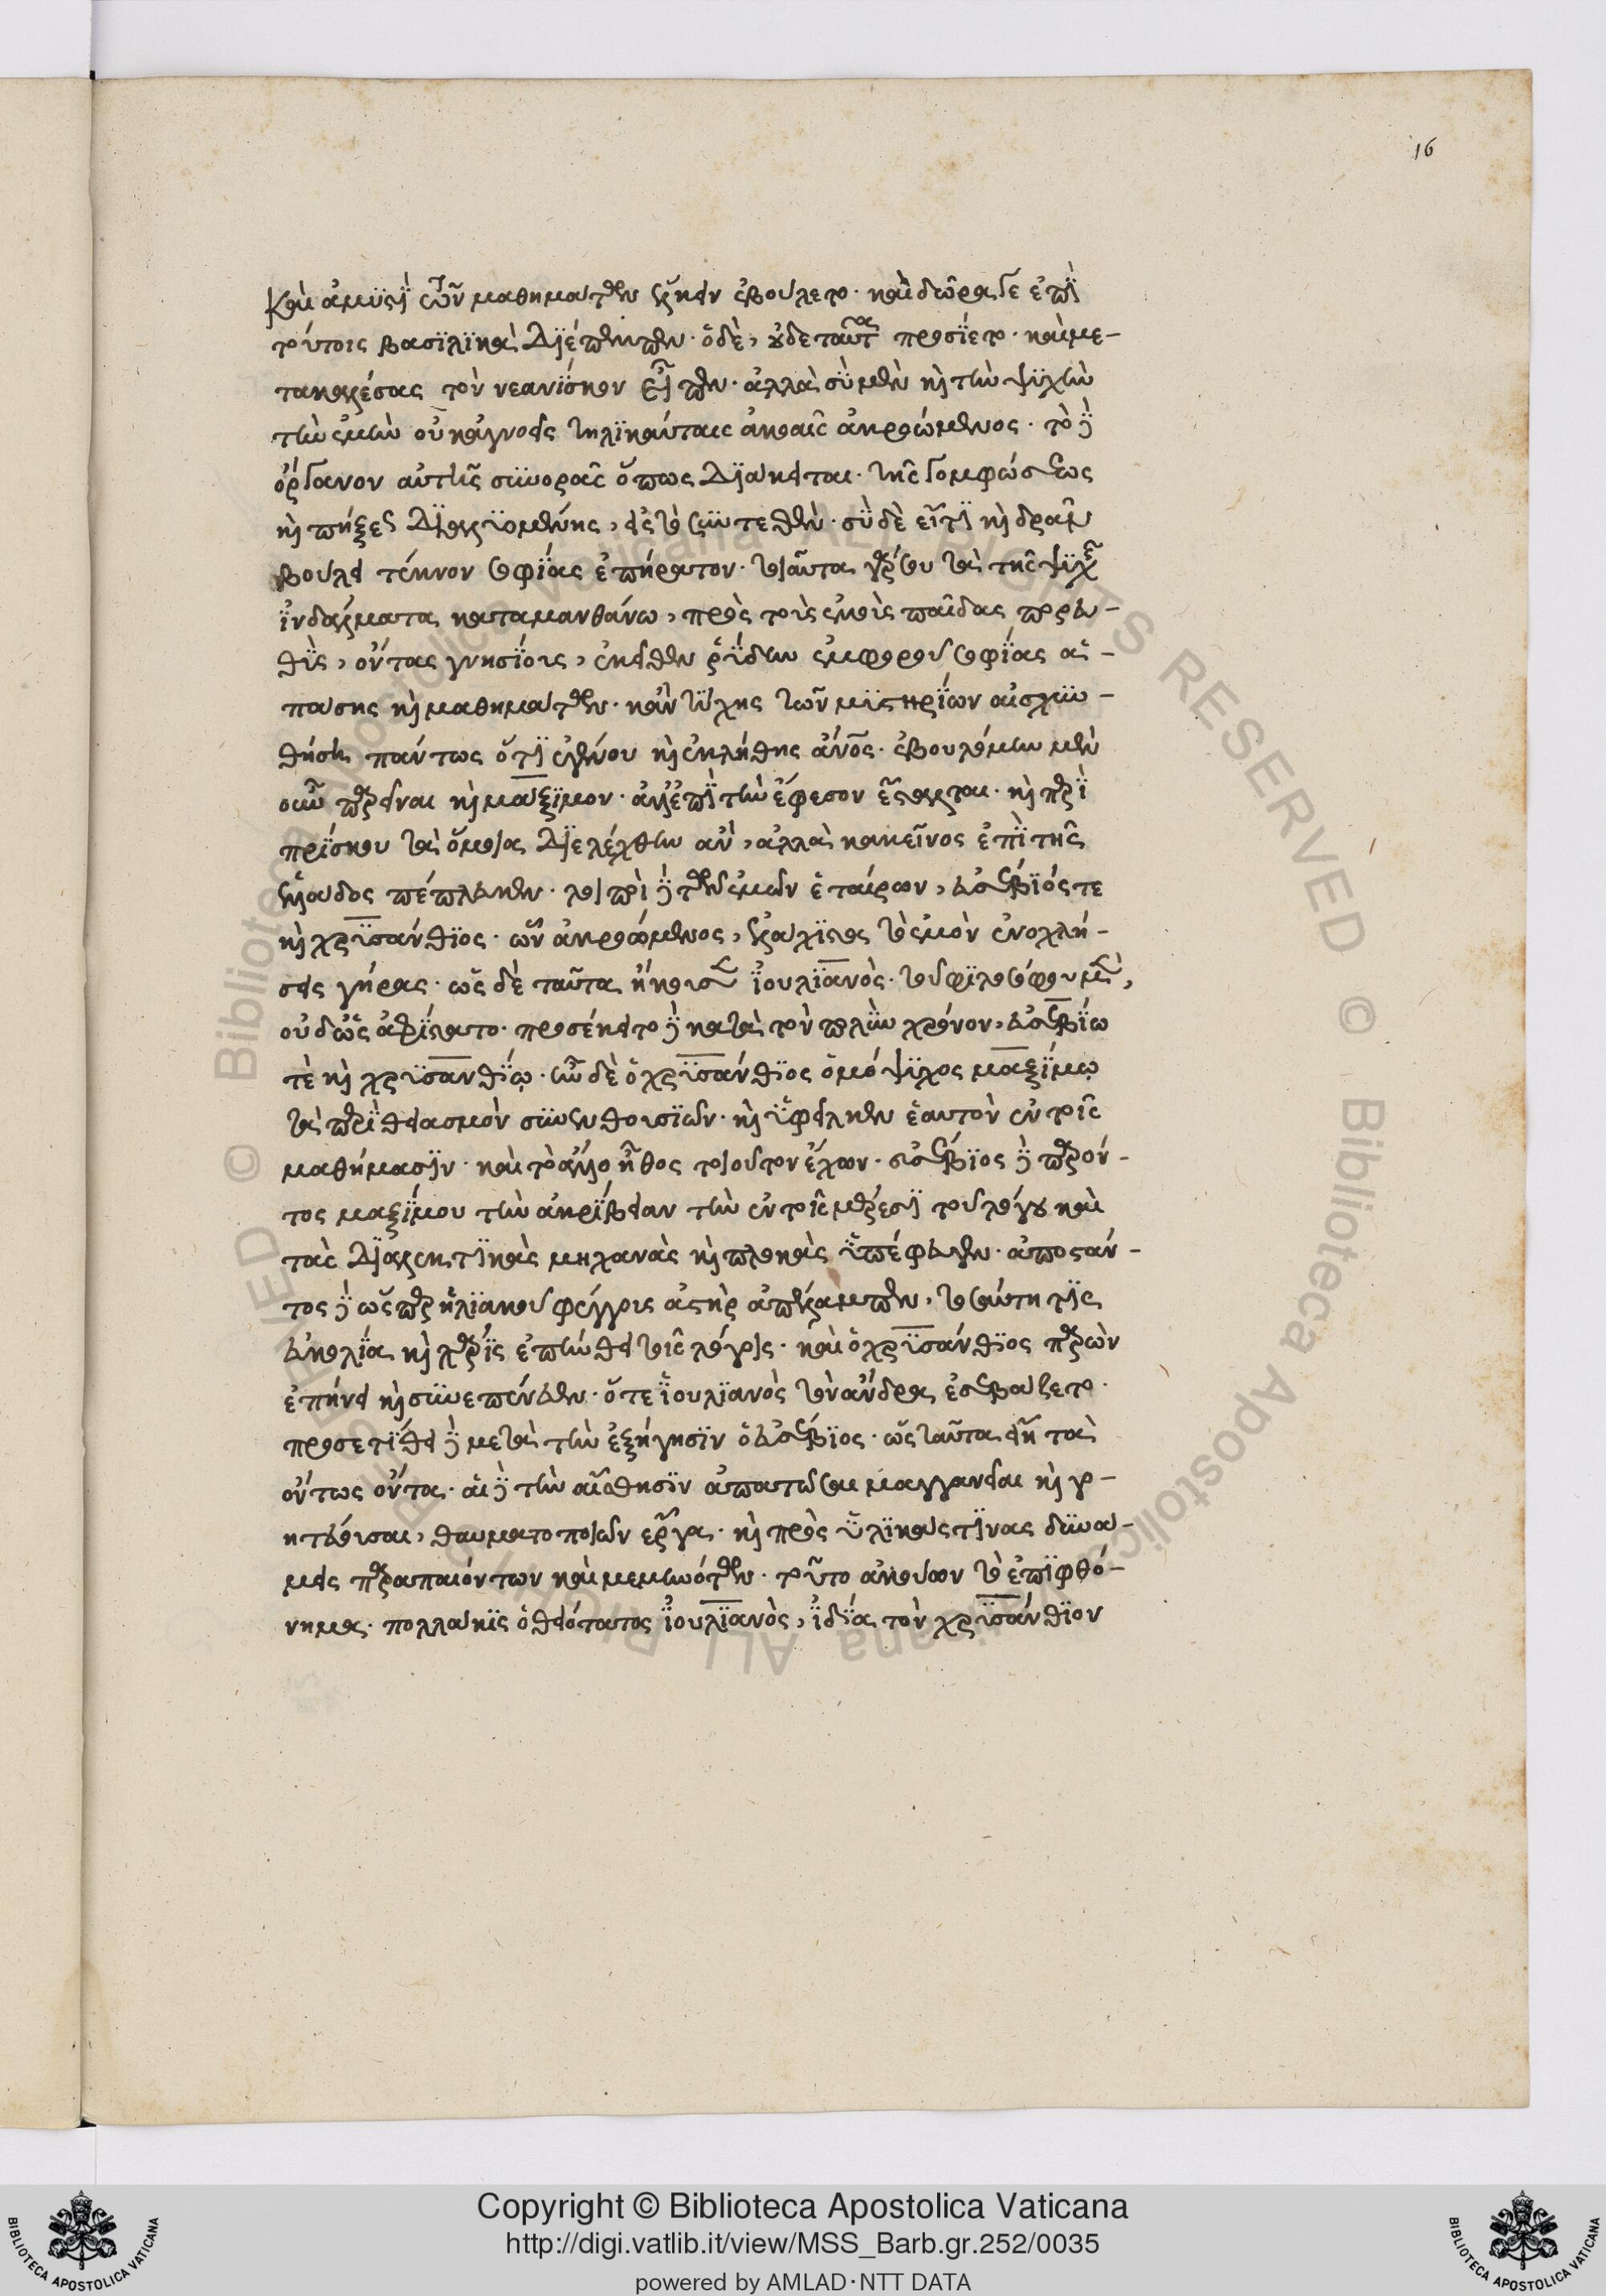 Καὶ ἀμυστὶ τῶν μαθημάτων ἕλκειν ἐβούλετο· καὶ δῶρα γε ἐπὶ
τούτοις βασιλικὰ διέπεμπεν· ὁ δὲ, οὐδε ταῦτα προσίετο· καὶ με-
τακαλέσας τὸν νεανίσκον εἶπεν· ἀλλὰ σὺ μὲν καὶ τὴν ψυχὴν
τὴν ἐμὴν οὐκ ἀγνοεῖς τηλικαύταις ἀκοαῖς ἀκροώμενος· τὸ δὲ
ὄργανον αὐτῆς συνορᾶς ὅπως διάκειται· τῆς γομφώσεως
καὶ πήξεως διαλυομένης, εἰς τὸ συντεθὲν· σὺ δὲ εἴ τι καὶ δρᾶν
βούλει τέκνον σοφίας ἐπήρατον· τοιαῦτα γάρ σου τὰ τῆς ψυχῆς
ἰνδάλματα καταμανθάνω, πρὸς τοὺς ἐμοὺς παῖδας πορευ-
θεὶς, ὄντας γνησίους, ἐκεῖθεν ῥύδην ἐμφοροῦ σοφίας ἁ-
πάσης καὶ μαθημάτων· κἂν τύχης τῶν μυστηρίων αἰσχυν-
θήση πάντως ὅτι ἐγένου καὶ ἐκλήθης ἄνος· ἐβουλόμην μὲν
οὖν παρεῖναι καὶ μάξιμον· ἀλλ' ἐπὶ τὴν ἔφεσον ἔσταλται· καὶ περὶ
πρίσκου τὰ ὅμοια διελέχθην ἂν, ἀλλὰ κακεῖνος ἐπὶ τῆς
ἑλλάδος πέπλευκεν· λοιποὶ δὲ τῶν ἐμῶν ἑταίρων, εὐσέβιός τε
καὶ χρυσάνθιος· ὧν ἀκροώμενος, ἐλάχιστα τὸ ἐμὸν ἐνοχλή-
σεις γήρας· ὡς δὲ ταῦτα ἤκουσεν ἰουλιανὸς· τοῦ φιλοσόφου μὲν,
οὐδ' ὣς ἀφίστατο· προσέκειτο δὲ κατὰ τὸν πολὺν χρόνον, εὐσεβίω
τὲ καὶ χρυσανθίῳ· ἦν δὲ ὁ χρυσάνθιος ὁμόψυχος μαξίμῳ
τὰ περὶ θειασμὸν συνενθουσιῶν· καὶ ὑφεῖλκεν ἑαυτὸν ἐν τοῖς
μαθήμασιν· καὶ τὸ ἄλλο ἦθος τοιοῦτον ἔχων· εὐσέβιος δὲ παρόν-
τος μαξίμου τὴν ἀκρίβειαν τὴν ἐν τοῖς μέρεσι τοῦ λόγου καὶ
τὰς διαλεκτικὰς μηχανὰς καὶ πλοκὰς ὑπέφευγεν· ἀποστάν-
τος δὲ ὥσπερ ἡλιακοῦ φέγγους ἀστὴρ ἀπέλαμπεν, τοσαύτη τὶς
εὐκολία καὶ χάρις ἐπήνθει τοῖς λόγοις· καὶ ὁ χρυσάνθιος παρὼν
ἐπήνει καὶ συνεπένευεν· ὅ τε ἰουλιανὸς τὸν ἄνδρα ἐσεβάζετο·
προσετίθει δὲ μετὰ τὴν ἐξήγησιν ὁ εὐσέβιος· ὡς ταῦτα εἴη τὰ
ὄντως ὄντα· αἱ δὲ τὴν αἴσθησιν ἀπατῶσαι μαγγανεῖαι καὶ γο-
ητεύουσαι, θαυματοποιῶν ἔργα· καὶ πρὸς ὑλικάς τινας δυνά-
μεις παραπαιόντων καὶ μεμηνότων· τοῦτο ἀκούων τὸ ἐπιφθό-
νημα· πολλάκις ὁ θειότατος ἰουλιανὸς, ἰδία τὸν χρυσάνθιον
16
© Biblioteca Apostolica Vaticana ALL RIGHTS RESERVED
Copyright © Biblioteca Apostolica Vaticana
http://digi.vatlib.it/view/MSS_Barb.gr.252/0035
powered by AMLAD·NTT DATA
BIBLIOTECA APOSTOLICA VATICANA
BIBLIOTECA APOSTOLICA VATICANA